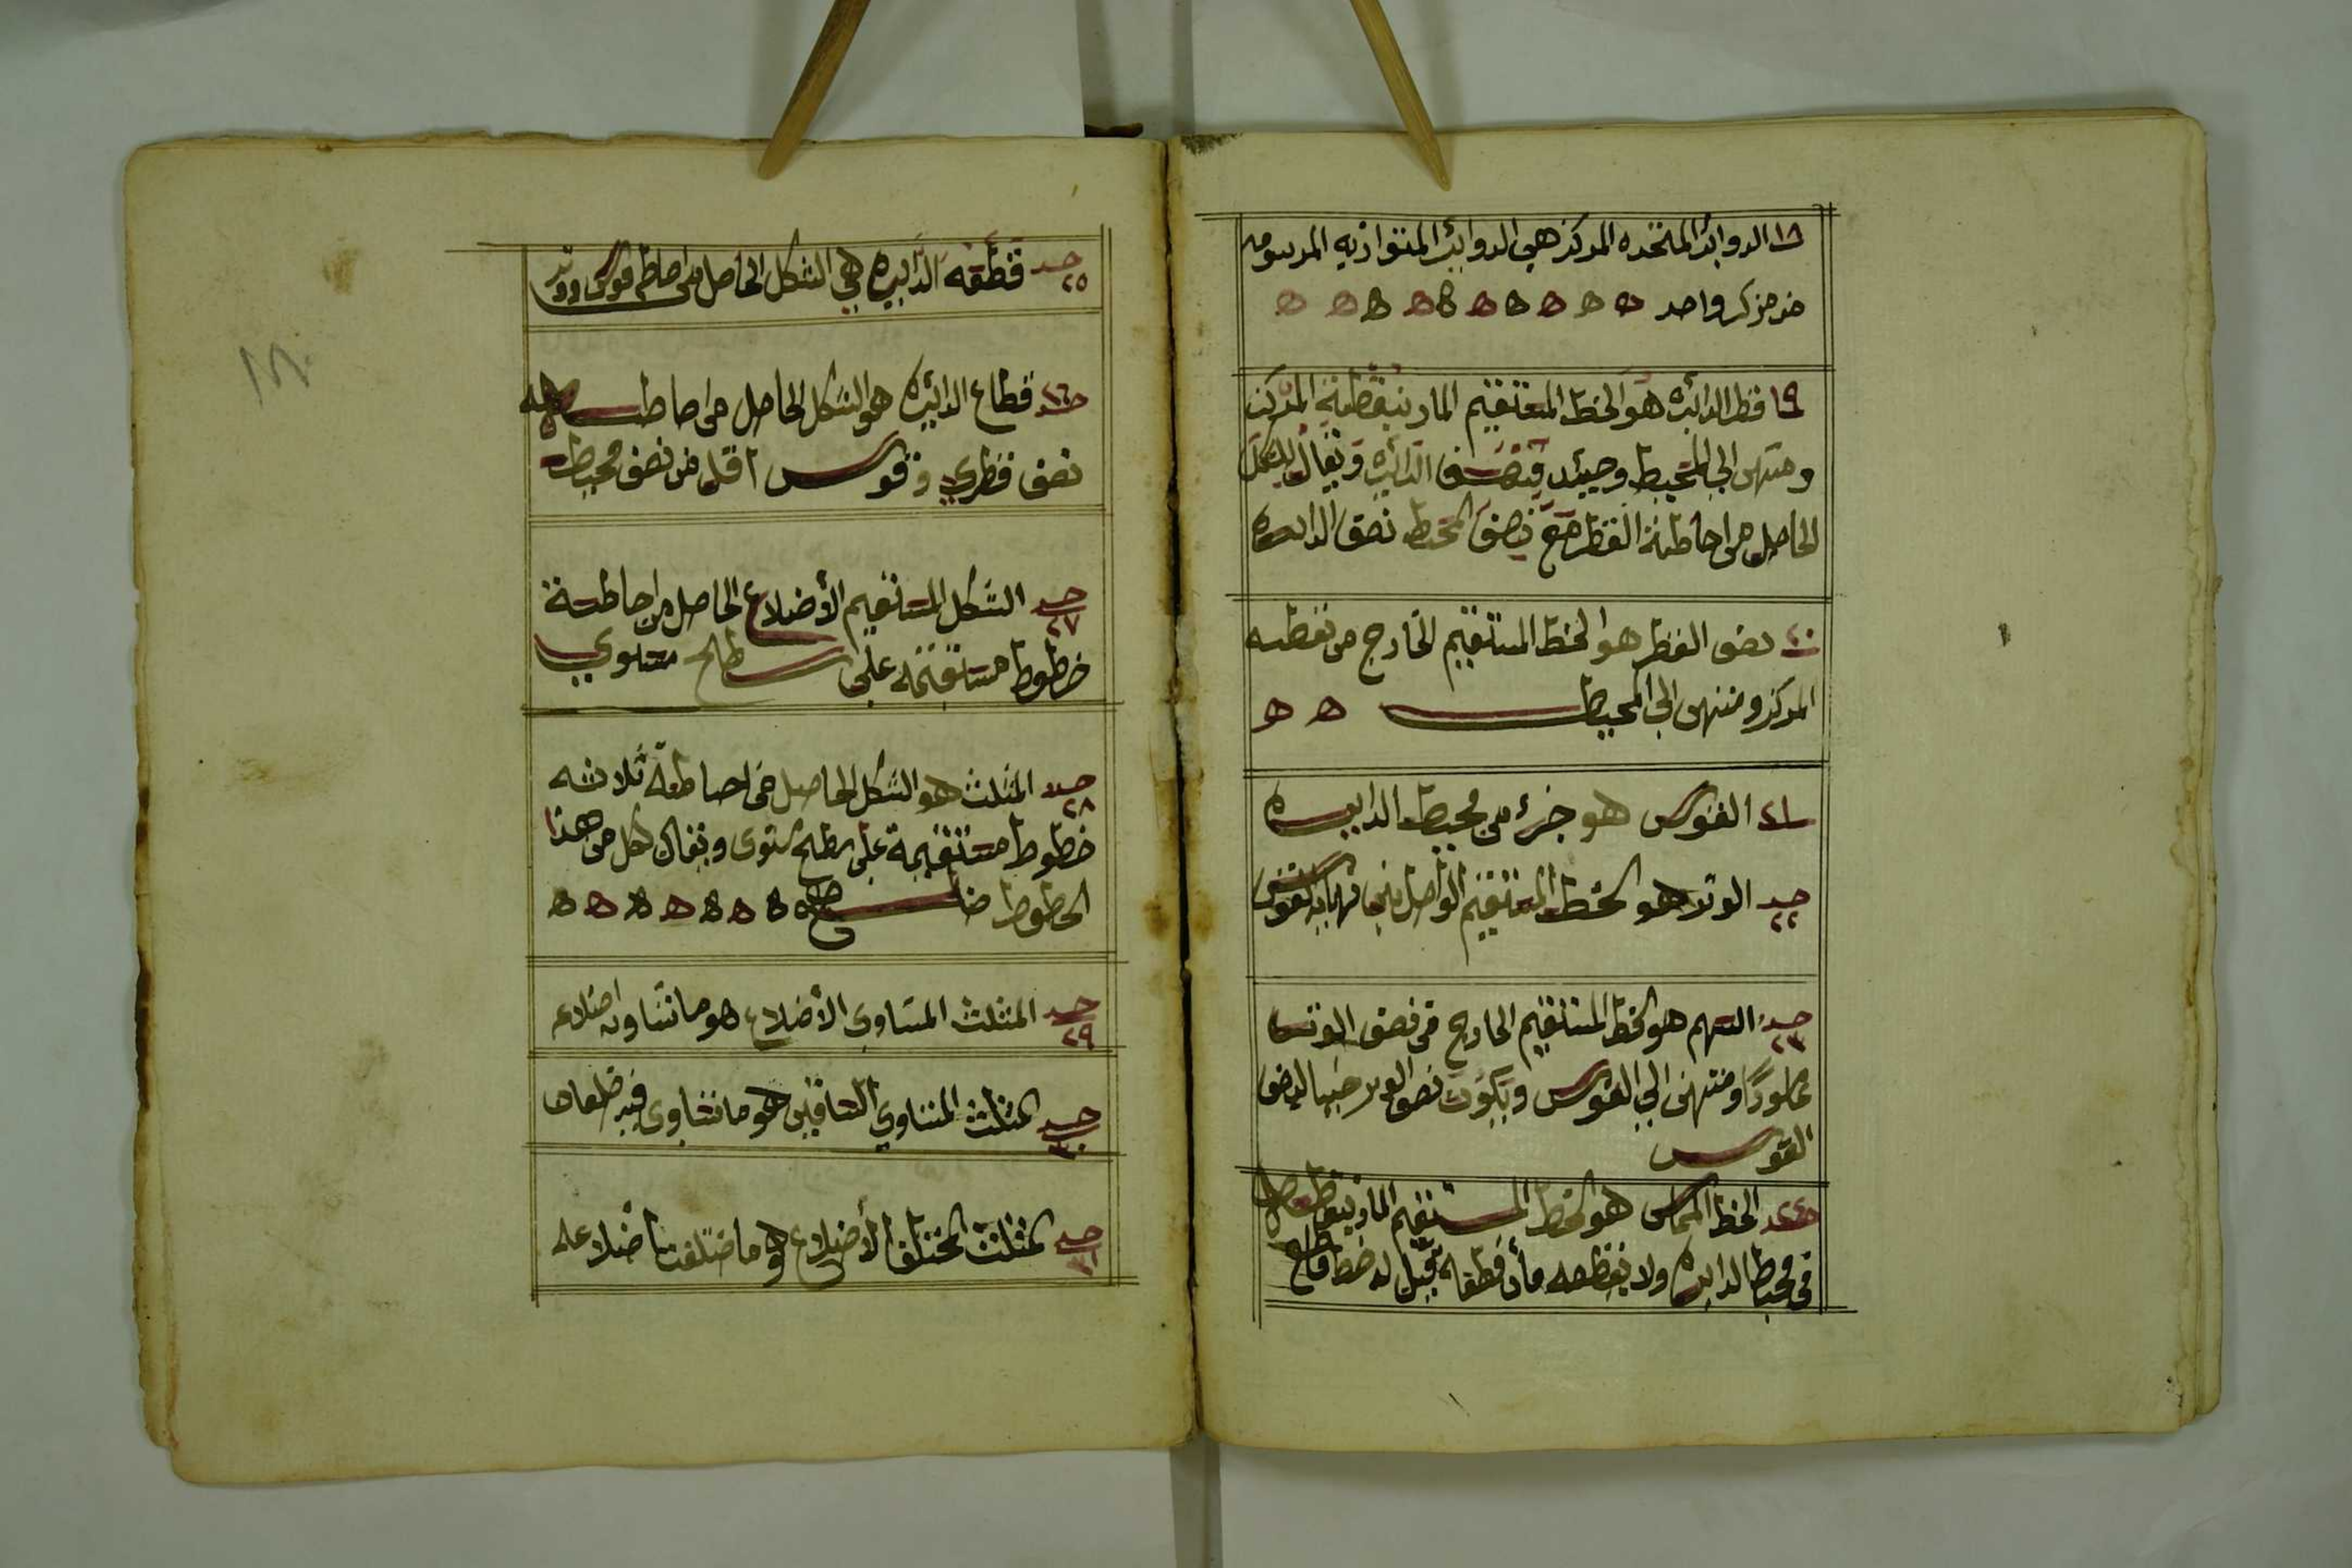 ١٨ الدوائر المتحده المركز هي الدوائر المتوازيه المرسومه
من مركز واحد ه ه ه ه ه ه ه ه ه ه
١٩ قطر الدائره هو الخط المستقيم المار بنقطة المركز
ومنتهى الى المحيط وحينئد ينصف الدائره ويقال للشكل
الحاصل من احاطة القطر مع نصف المحيط نصف الدايره
٢٠ نصف القطر هو الخط المستقيم الخارج من نقطه
المركز ومنتهى الي المحيط ه ه
٢١ القوس هو جزء من محيط الدايره
حد ٢٢ الوتر هو الخط المستقيم الواصل بين نهايه القوس
حد ٢٣ السهم هو الخط المستقيم الخارج من نصف الوتر
عمودًا ومنتهى الي القوس ويكون نصف الوتر جيبا لنصف
القوس
حد ٢٤ الخط المماس هو الخط المستقيم المار بنقطه
في محيط الدايره ولا يقطعه فأن قطعه قيل له خط قاطع
حد ٢٥ قطعه الدايره هي الشكل الحاصل من احاطه قوس ووتر
حد ٢٦ قطاع الدائيره هو الشكل الحاصل من احاطه
نصف قطري وقوس اقل من نصف محيط
حد ٢٧ الشكل المستقيم الأضلاع الحاصل من احاطة
خطوط مستقيمه على سطح مستوي
حد ٢٨ المثلث هو الشكل الحاصل من احاطة ثلاثه
خطوط مستقيمة على سطح مستوى ويقال لكل من هذا
الخطوط ضلع ه ه ه ه ه ه ه ه
حد ٢٩ المثلث المتساوى الأضلاع هو ما تساوت اضلاعه
حد ٣٠ المثلث المتساوي الساقين هو ما تساوى فيه ضلعان
حد ٣١ المثلث المختلف الأضلاع هو ما اختلفت أضلاعه